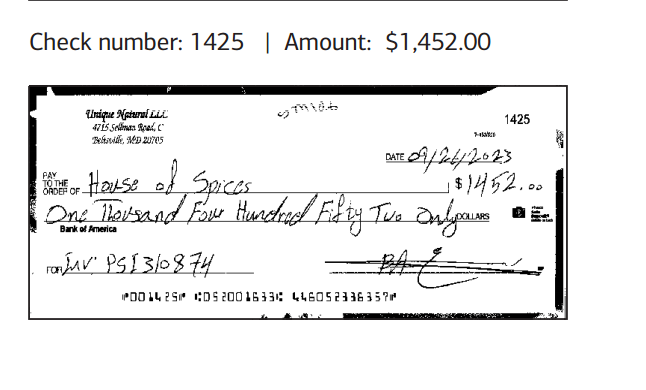 Check number: 1425 | Amount: $1,452.00
Unique Natural LLC
4715 Sellman Road, C
Beltsville, MD 20705
1425
DATE 09/26/2023
PAY TO THE ORDER OF House of Spices $1452.00
One Thousand Four Hundred Fifty Two only DOLLARS
Bank of America
FOR Inv: PSI310874